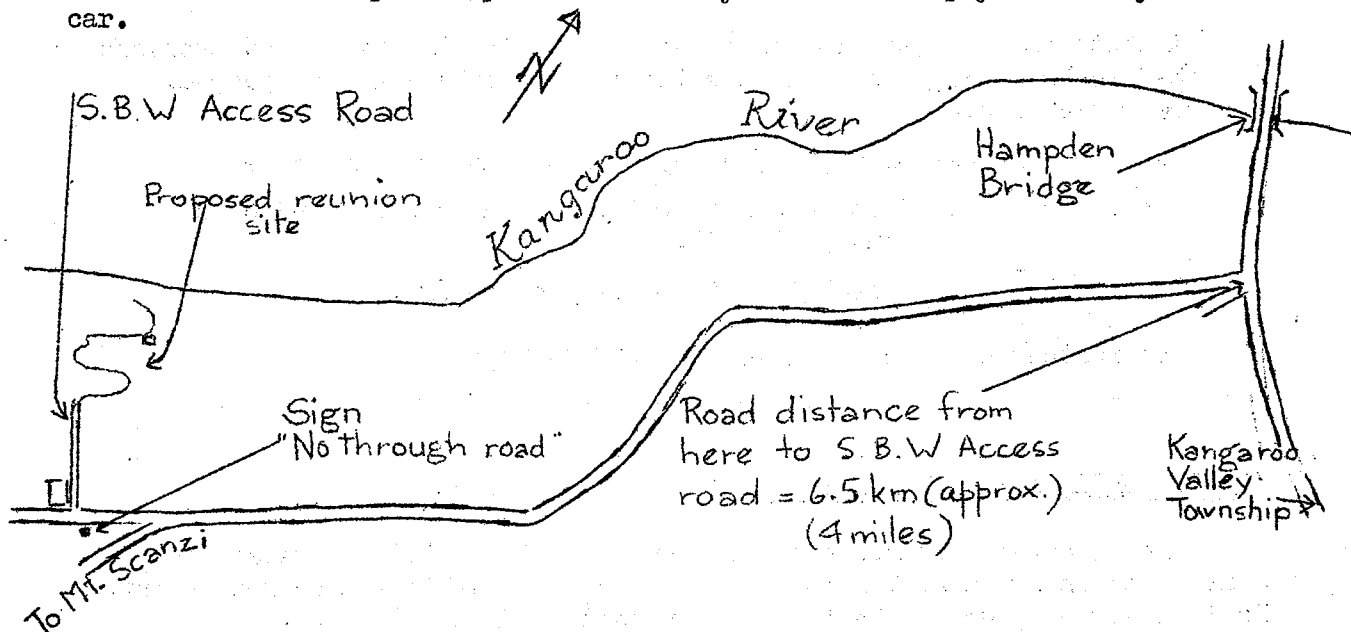 car.
N
S.B.W Access Road
Proposed reunion
site
Kangaroo River
Hampden
Bridge
Sign
"No through road"
Road distance from
here to S.B.W Access
road = 6.5 km (approx.)
(4 miles)
Kangaroo
Valley
Township
To Mt. Scanzi